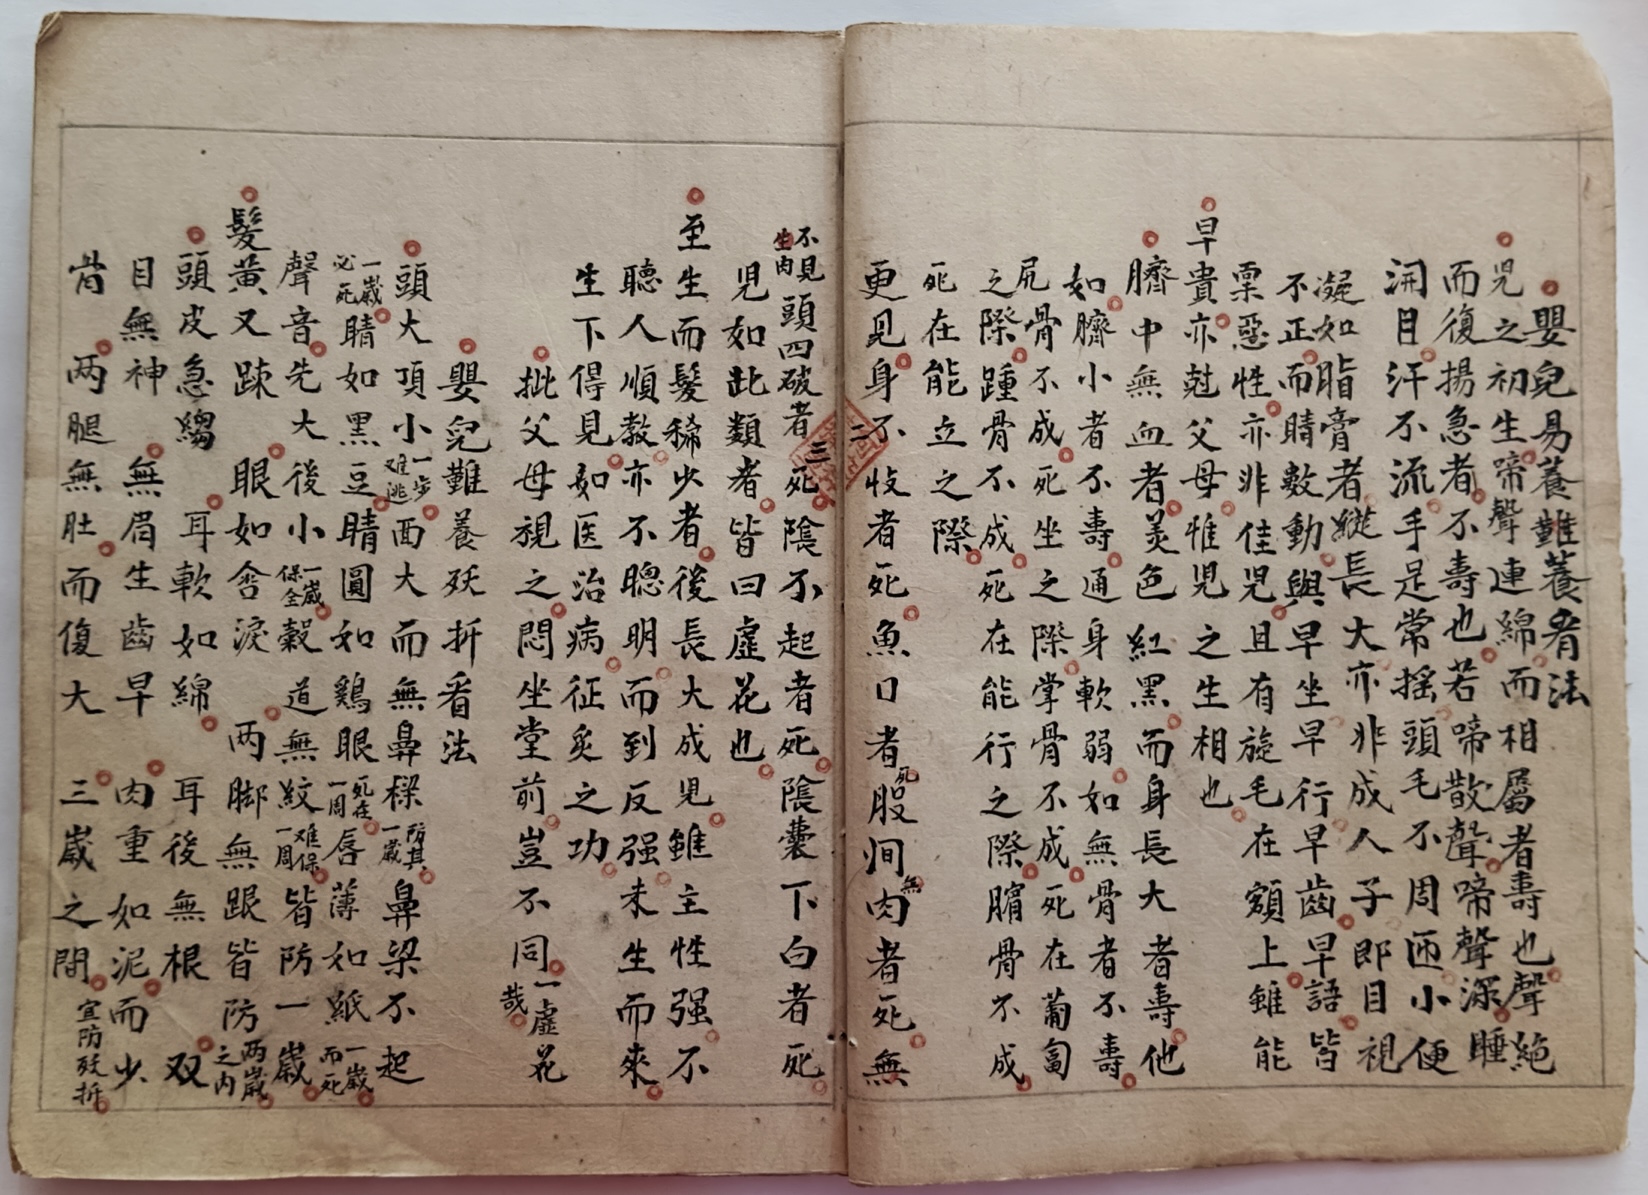 嬰兒易養難養看法
兒之初生啼聲連綿而相屬者壽也聲絶
而復揚急者不壽也若啼散聲啼聲深睡
開目汗不流手足常搖頭毛不周匝小便
凝如脂膏者縱長大亦非成人子即目視
不正而睛數動與早坐早行早齒早語皆
稟惡性亦非佳兒且有旋毛在額上雖能
早貴亦尅父母惟兒之生相也
臍中無血者美色紅黑而身長大者壽他
如臍小者不壽通身軟弱如無骨者不壽
尻骨不成死坐之際掌骨不成死在葡匐
之際踵骨不成死在能行之際臏骨不成
死在能立之際
更見身不收者死魚口者死股间無肉者死無
二
三
不見生肉頭四破者死陰不起者死陰囊下白者死
兒如此類者皆曰虛花也
至生而髮稀少者後長大成兒雖主性强不
聽人順教亦不聰明而到反强未生而來
生下得見如医治病征炙之功
批父母視之悶坐堂前豈不同一虛花哉
嬰兒難養殀折看法
頭大頂小一步难逃面大而無鼻樑防其一歲鼻梁不起
一歲必死睛如黑豆睛圓如鷄眼死在一周唇薄如紙一歲而死
聲音先大後小一歲保全穀道無紋难保一周皆防一歲
髮黃又踈眼如含淚兩脚無跟皆防两歲之内
頭皮急縐耳軟如綿耳後無根双
目無神無眉生齒早肉重如泥而少
肯两腿無肚而復大三歲之間宜防殀折